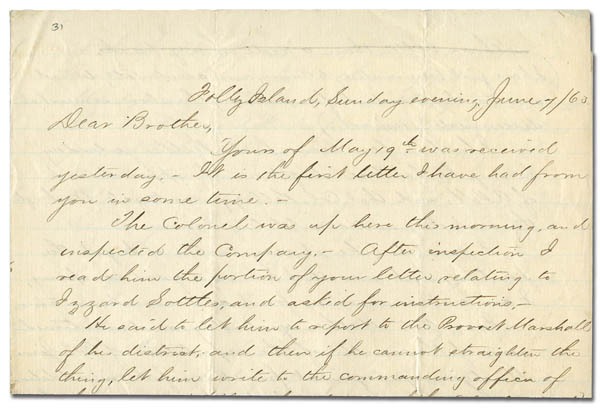 31
Folly Island, Sunday evening, June 7/63
Dear Brother,
Yours of May 19th was received
yesterday. – It is the first letter I have had from
you in some time. –
The Colonel was up here this morning, and
inspected the Company. – After inspection I
read him the portion of your letter relating to
Izzard Sottles, and asked for instructions. –
He said to let him to report to the Provost Marshall
of his district, and then if he cannot straighten the
thing, let him write to the commanding officer of